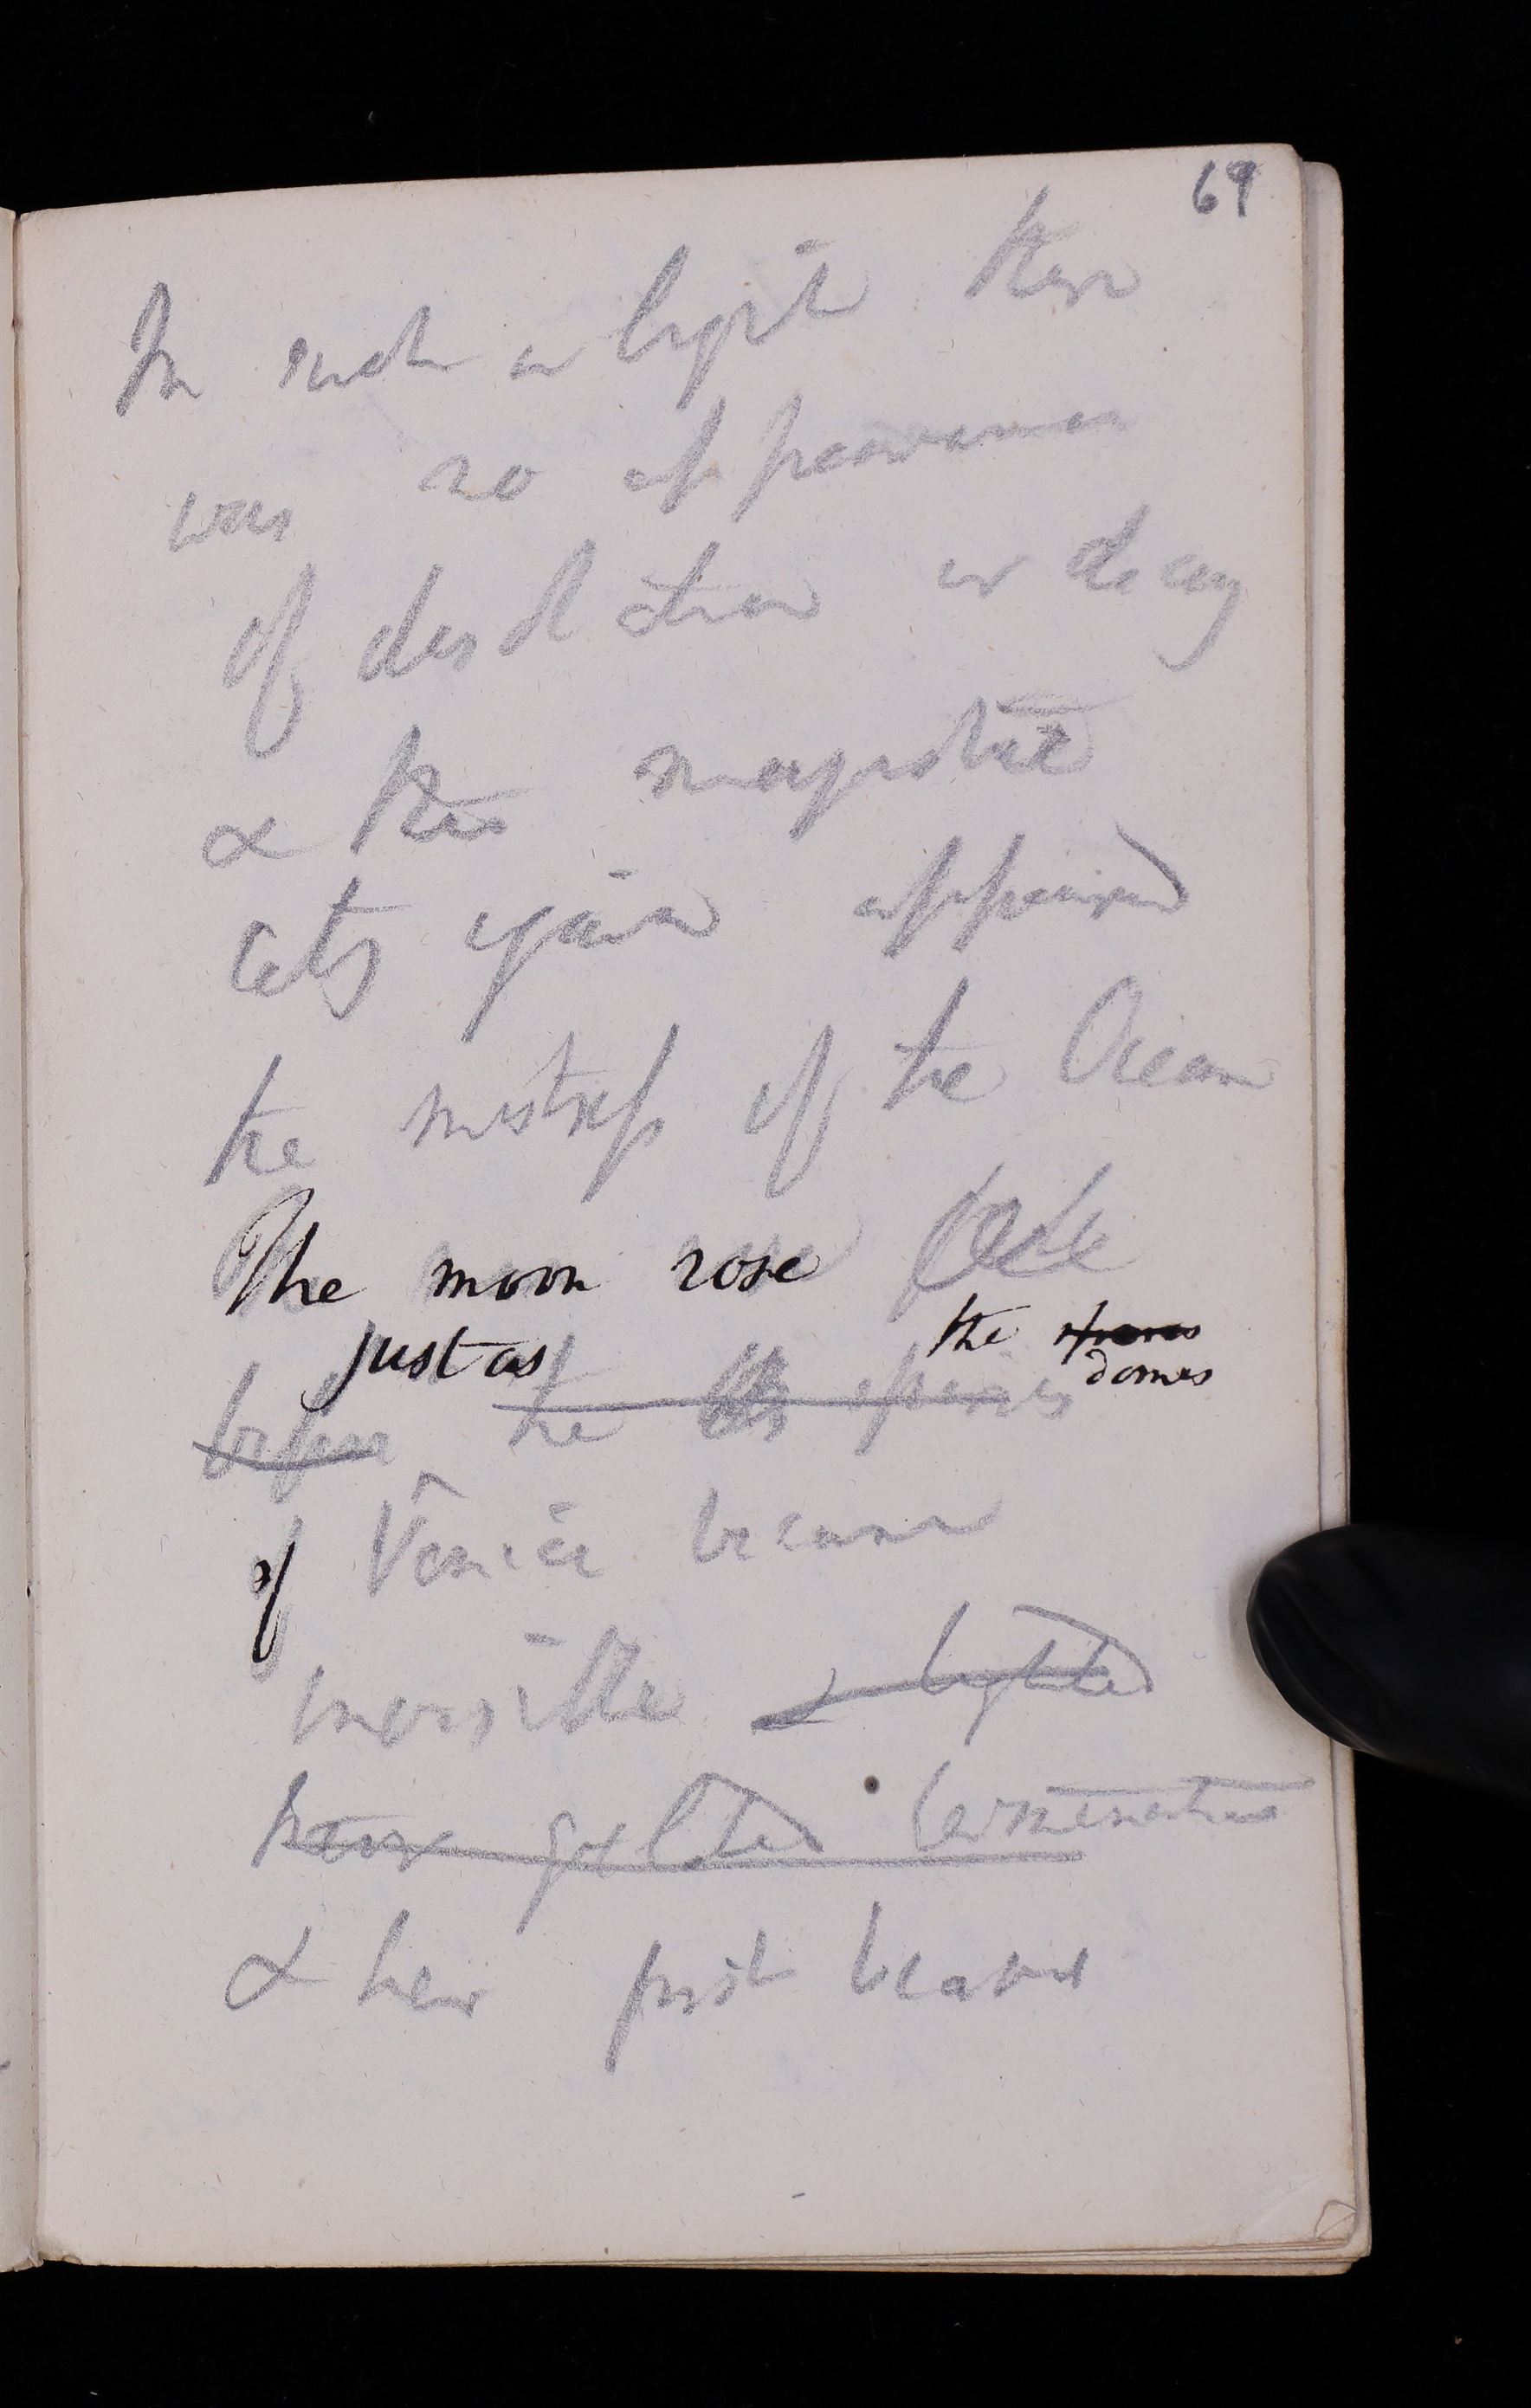 69
In such a light there
was no appearance
of desolation or decay
& this magnificent
city again appeared
the mistress of the Ocean
The moon rose
just as the spires
domes
before the spires
of Venice became
invisible & lighted
& her first beams